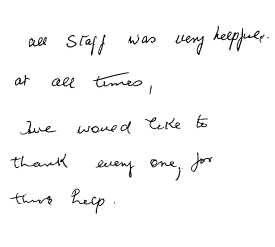 all staff was very helpful.
at all times,
I we would like to
thank every one, for
their help.